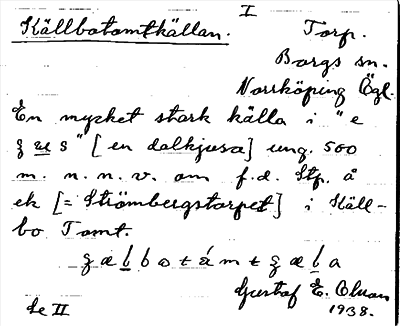 I
Källbotomtkällan. Torp.
Borgs sn.
Norrköping Ögl.
En mycket stark källa i "e
ʒ u s" [en dalkjusa] ung. 500
m. n. n. v. om f.d. Stp. å
ek [= Strömbergstorpet] i Käll-
bo Tomt.
ʒ æ l b o t á m t ʒ æ l a
Gustaf E. Olsson
1938.
se II